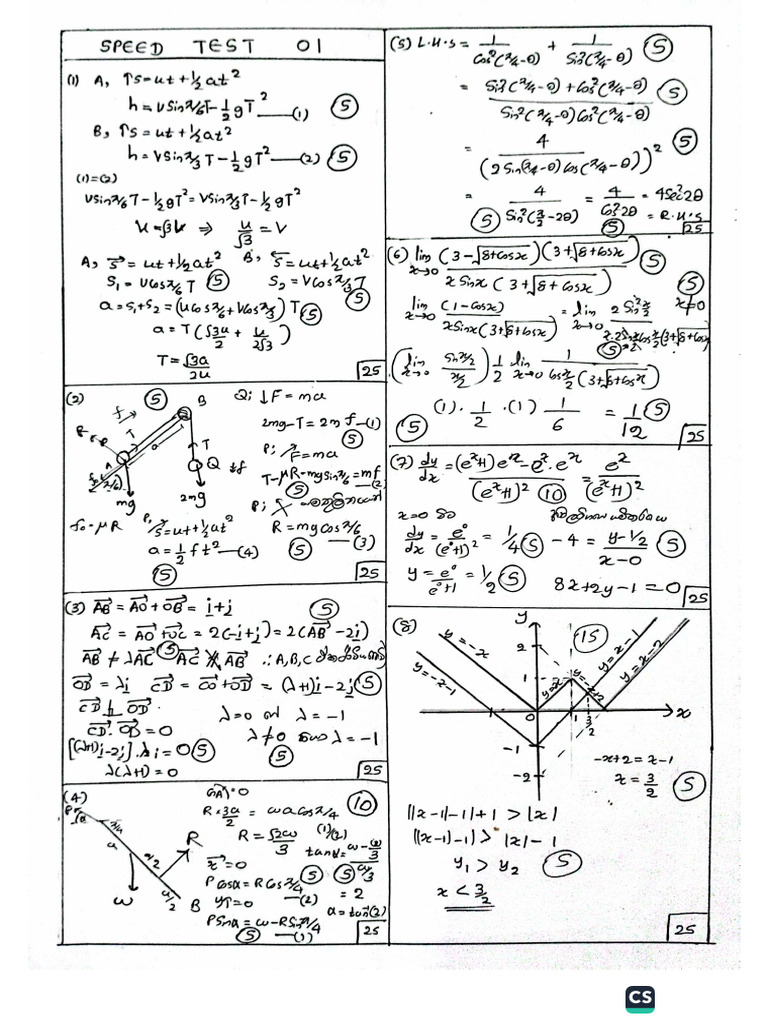 SPEED TEST 01
(1) A, ↑s=ut+½at²
h=usinπ/6T-½gT² —(1) (5)
B, ↑s=ut+½at²
h=vsinπ/3T-½gT² —(2) (5)
(1)=(2)
usinπ/6T-½gT²=vsinπ/3T-½gT²
u=√3v ⇒ u/√3=v
A, →s=ut+½at² B, ←s=ut+½at²
s₁=ucosπ/6T (5) s₂=vcosπ/3T (5)
a=s₁+s₂=(ucosπ/6+vcosπ/3)T (5)
a=T(√3u/2+u/2√3)
T=√3a/2u
25
(2) (5) B Q; ↓F=ma
2mg-T=2mf—(1) (5)
P; ↗F=ma
T-μR-mgsinπ/6=mf —(2) (5)
A T a T Q ↓f
mg 2mg
R=mgcosπ/6 —(3) (5)
P, ↗s=ut+½at²
a=½ft²—(4) (5)
25
(3) AB=AO+OB=i+j (5)
AC=AO+OC=2(-i+j)=2(AB-2i)
AB≠λAC (5) AC∦AB ∴A,B,C
OD=λi CD=CO+OD=(λ+1)i-2j (5)
CD⊥OD
CD·OD=0 λ=0 λ=-1
[(λ+1)i-2j]·λi=0 (5) λ≠0 λ=-1 (5)
λ(λ+1)=0
25
(4) A)=0
R×3a/2=wacosπ/4 (10)
R=√2w/3
→x=0
Pcosα=Rcosπ/4 (5) —(2)
y↑=0
Psinα=w-Rsinπ/4 (5) —(1)
(1)/(2)
tanα=(w-w/3)/(w/3) (5)
=2
α=tan⁻¹(2)
a a/2 R w a/2 B
25
(5) L.H.S=1/cos²(π/4-θ) + 1/sin²(π/4-θ) (5)
=sin²(π/4-θ)+cos²(π/4-θ)/sin²(π/4-θ)cos²(π/4-θ) (5)
=4/(2sin(π/4-θ)cos(π/4-θ))² (5)
=4/sin²(π/2-2θ) (5) =4/cos²2θ (5) =4sec²2θ
=R.H.S
25
(6) lim x→0 (3-√8+cosx)(3+√8+cosx)/xsinx(3+√8+cosx) (5)
lim x→0 (1-cosx)/xsinx(3+√8+cosx) =lim x→0 2sin²x/2/x·2sinx/2cosx/2(3+√8+cosx) (5) x≠0 (5)
(lim x→0 sinx/2/x/2)½ lim x→0 1/cosx/2(3+√8+cosx)
(5) (1)·½·(1) 1/6 =1/12 (5)
25
(7) dy/dx=(eˣ+1)eˣ-eˣ·eˣ/(eˣ+1)² (10) =eˣ/(eˣ+1)²
x=0
dy/dx=e⁰/(e⁰+1)²=1/4 (5) -4=y-1/2/x-0 (5)
y=e⁰/e⁰+1=1/2 (5) 8x+2y-1=0
25
(8) y (15)
y=-x y=x-1
y=-x-1 y=x y=-x+2 y=x-2
2 1 0 1 3/2 x
-1
-2
-x+2=x-1
x=3/2 (5)
||x-1|-1|+1>|x|
||x-1|-1|>|x|-1
y₁>y₂ (5)
x<3/2
25
CS